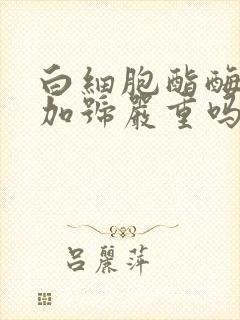 白細胞酯酶
加號嚴重嗎
呂麗萍